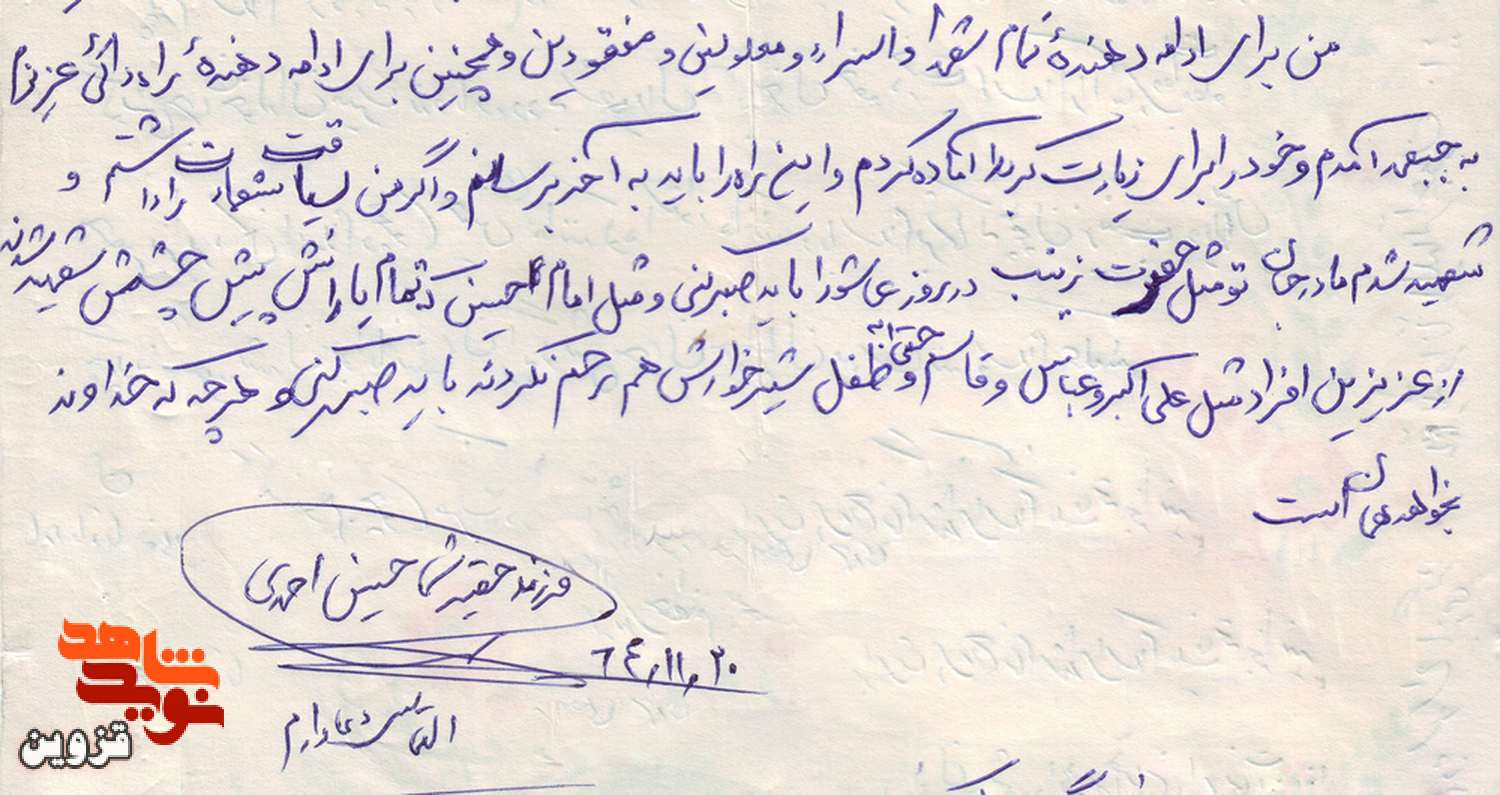 من برای ادامه دهندهٔ تمام شهدا و اسراء و معلولین و مفقودین و همچنین برای ادامه دهندهٔ راه دائی عزیزم
به جبهه آمدم و خود را برای زیارت کربلا آماده کردم و این راه را باید به آخر برسانم و اگر من لیاقت شهادت را داشتم و
شهید شدم مادر جان تو مثل حضرت زینب در روز عاشورا باید صبر کنی و مثل امام حسین که تمام یارانش پیش چشمش شهید شدند
از عزیزین افراد مثل علی اکبر و عباس و قاسم و حتی به طفل شیر خوارش هم رحم نکردند باید صبر کنی و هر چه که خداوند
بخواهد همان است
فرزند حقیر شما حسین احمدی
۶۴,۱۱,۲۰
التماس دعا دارم
نوید شاهد
قزوین